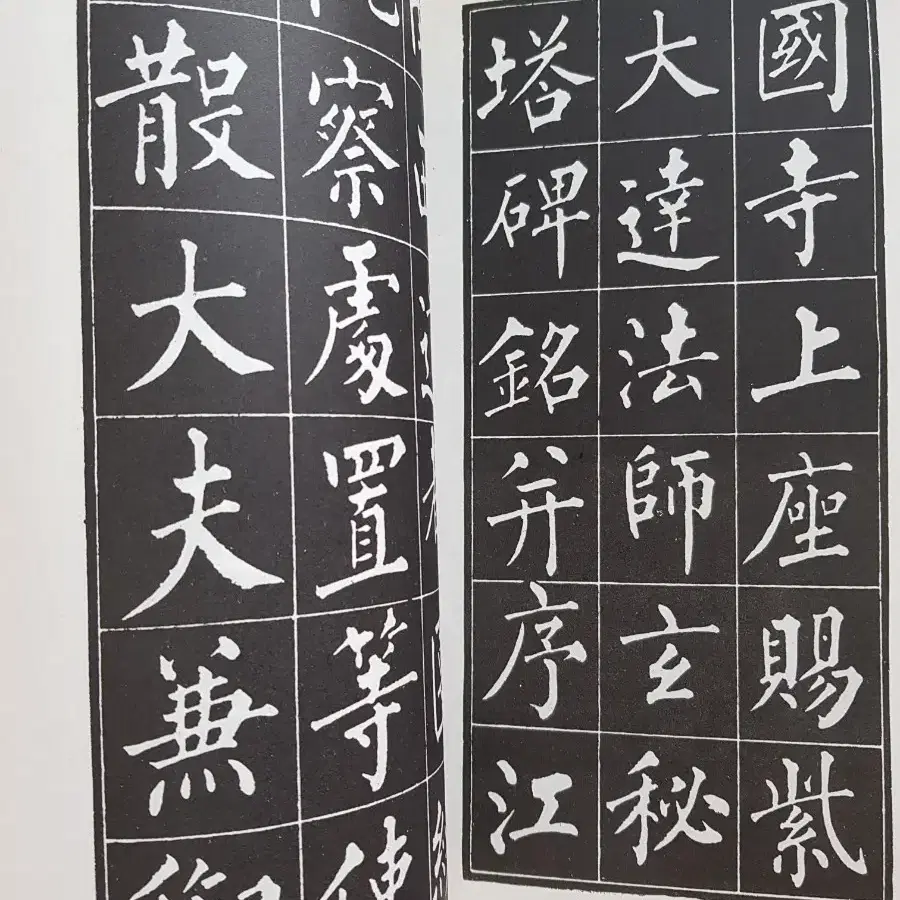 國寺上座賜紫
大達法師玄秘
塔碑銘并序江
察處置等使
散大夫兼御